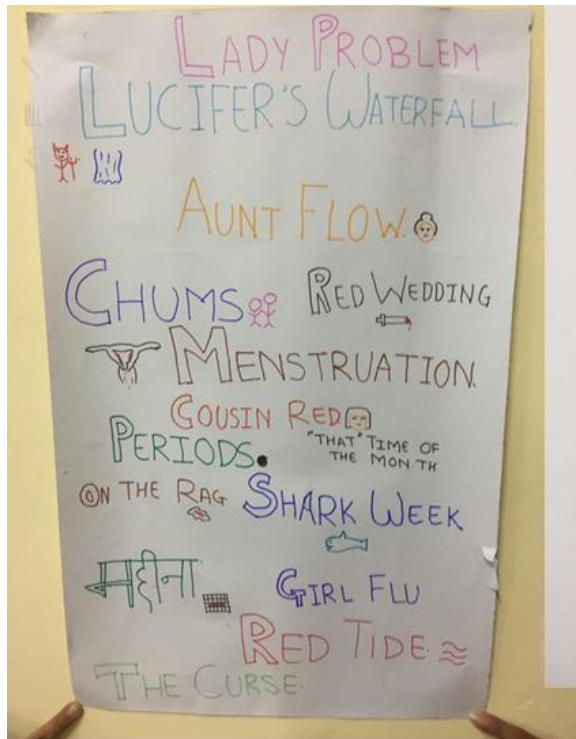 LADY PROBLEM
LUCIFER'S WATERFALL
AUNT FLOW.
CHUMS
RED WEDDING
MENSTRUATION.
COUSIN RED
PERIODS.
"THAT" TIME OF
THE MONTH
ON THE RAG
SHARK WEEK
महीना
GIRL FLU
RED TIDE
THE CURSE